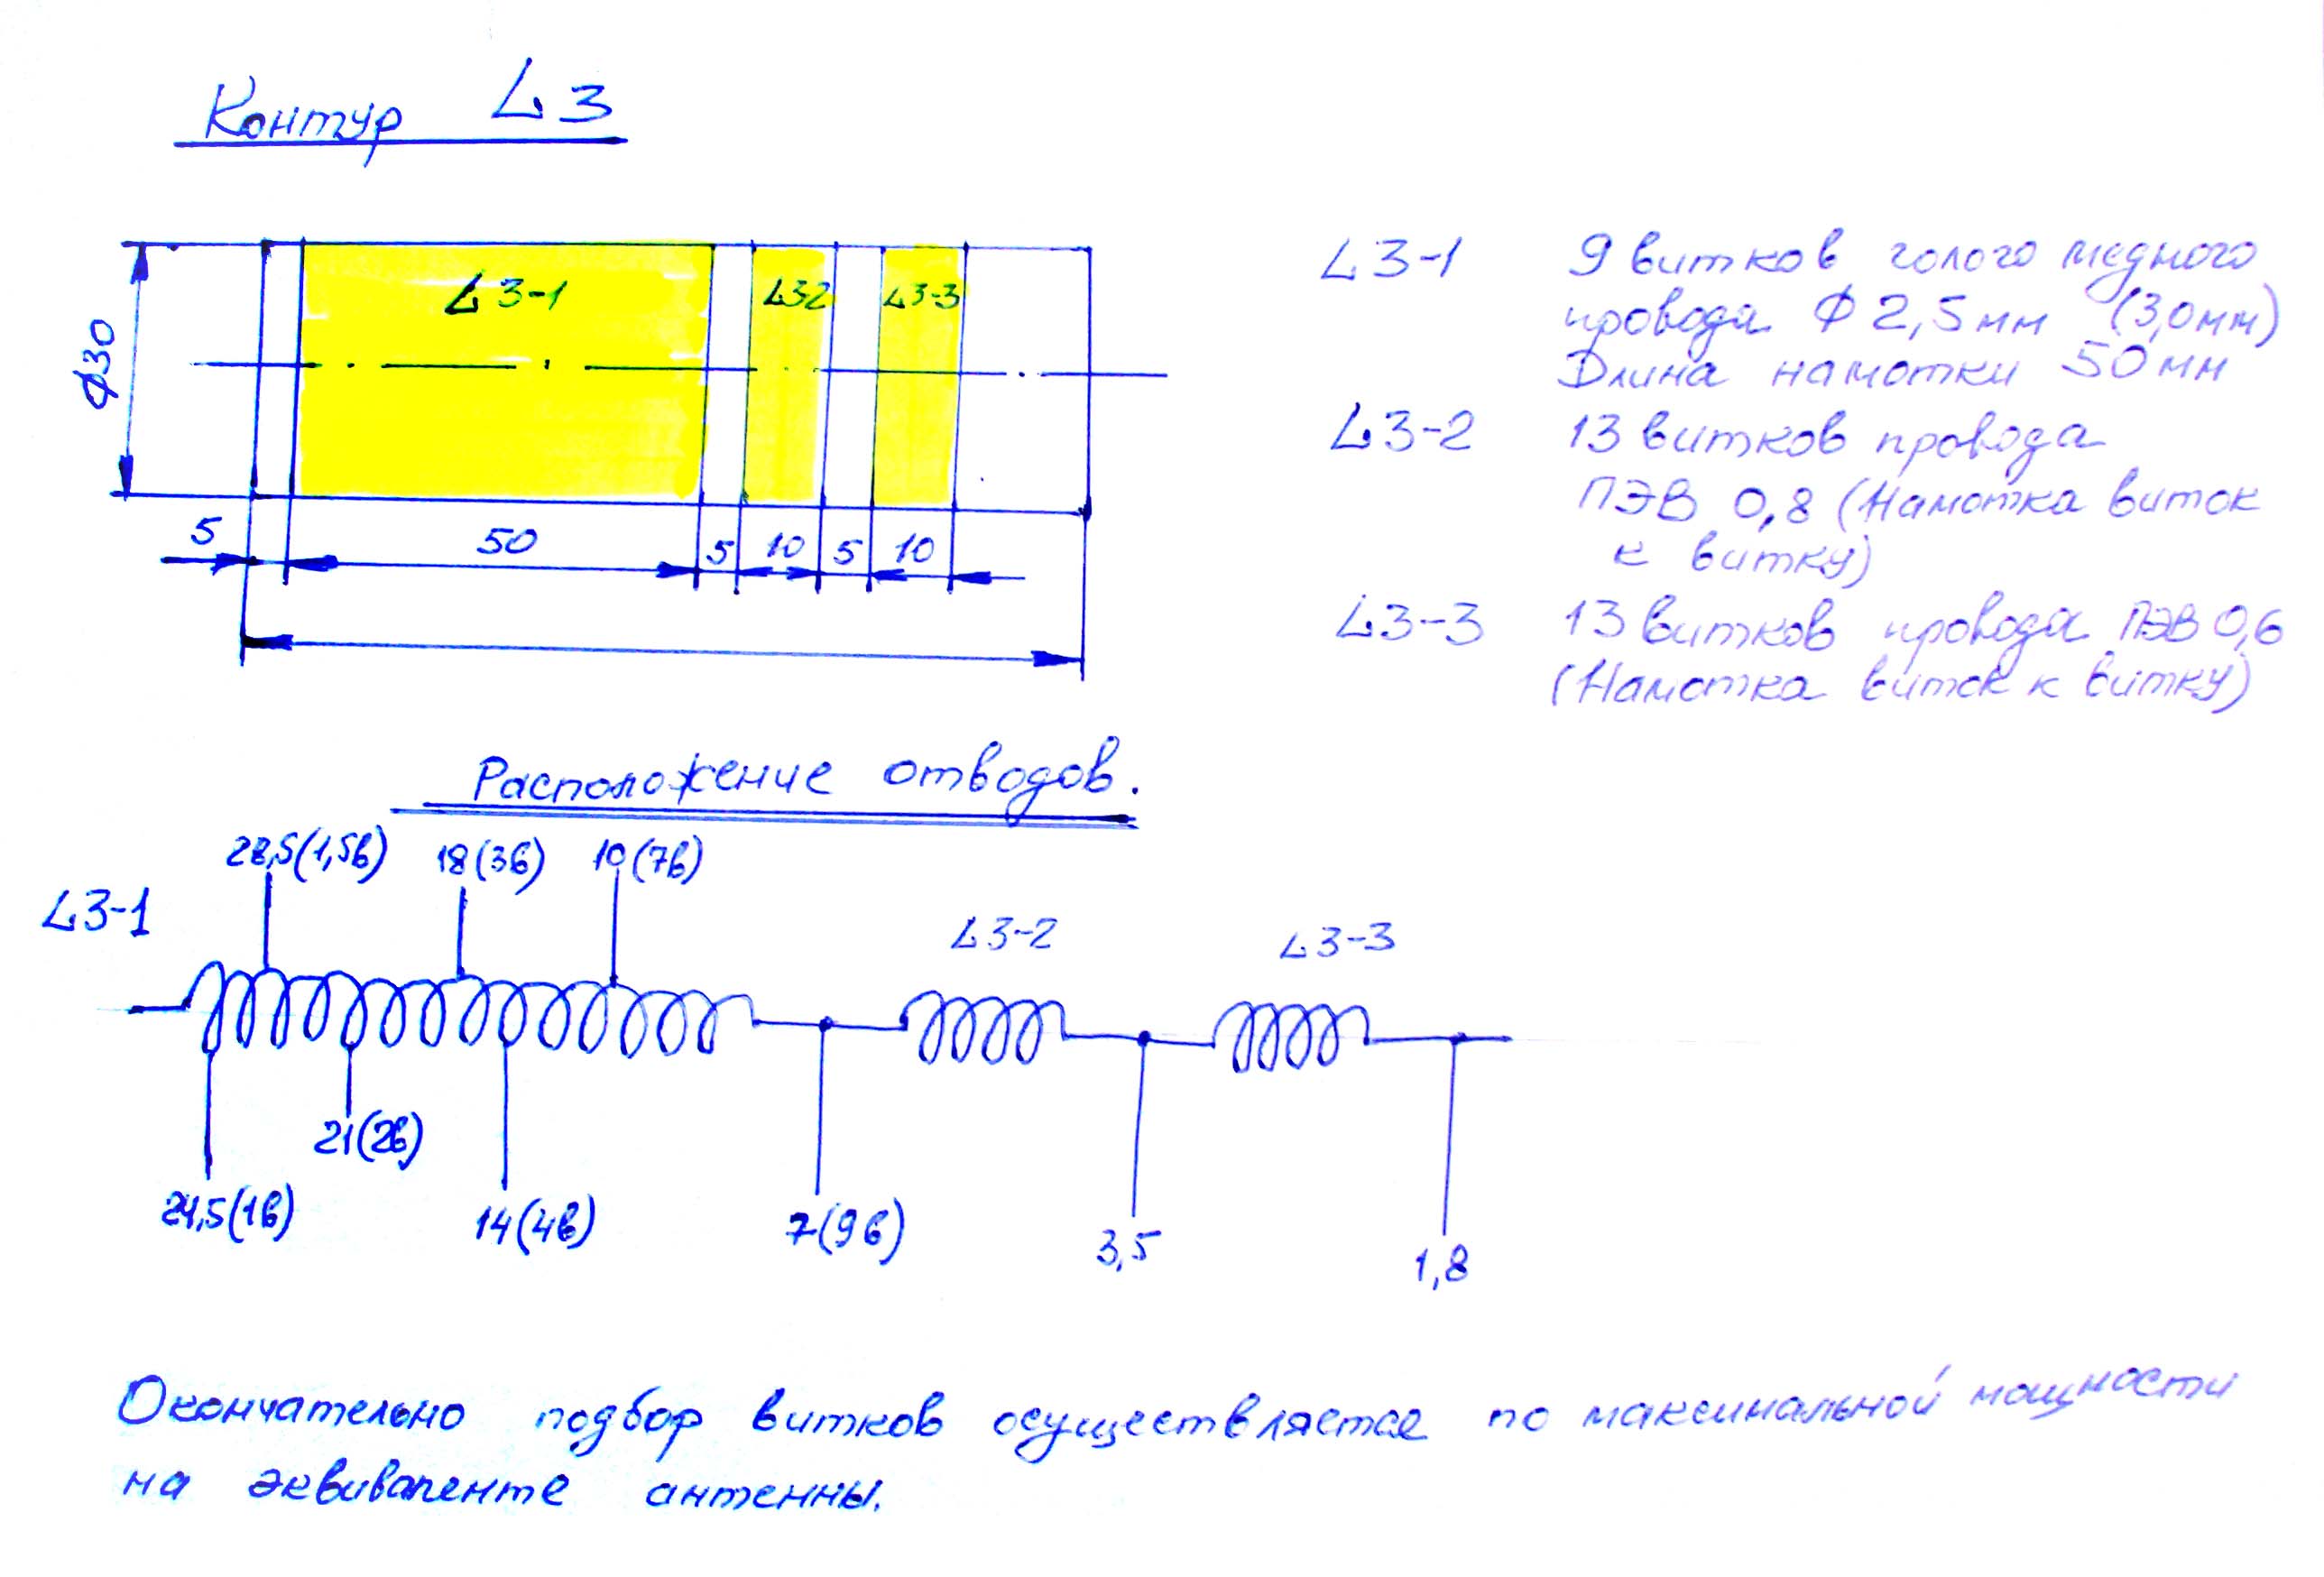 Контур L3
L3-1
L3-2
L3-3
Ф30
5
50
5
10
5
10
L3-1 9 витков голого медного
провода Ф 2,5мм (3,0мм)
Длина намотки 50мм
L3-2 13 витков провода
ПЭВ 0,8 (Намотка виток
к витку)
L3-3 13 витков провода ПЭВ 0,6
(Намотка виток к витку)
Расположение отводов.
28,5(1,5в) 18(3в) 10(7в)
L3-1
L3-2
L3-3
21(2в)
24,5(1в) 14(4в) 7(9в) 3,5 1,8
Окончательно подбор витков осуществляется по максимальной мощности
на эквиваленте антенны.